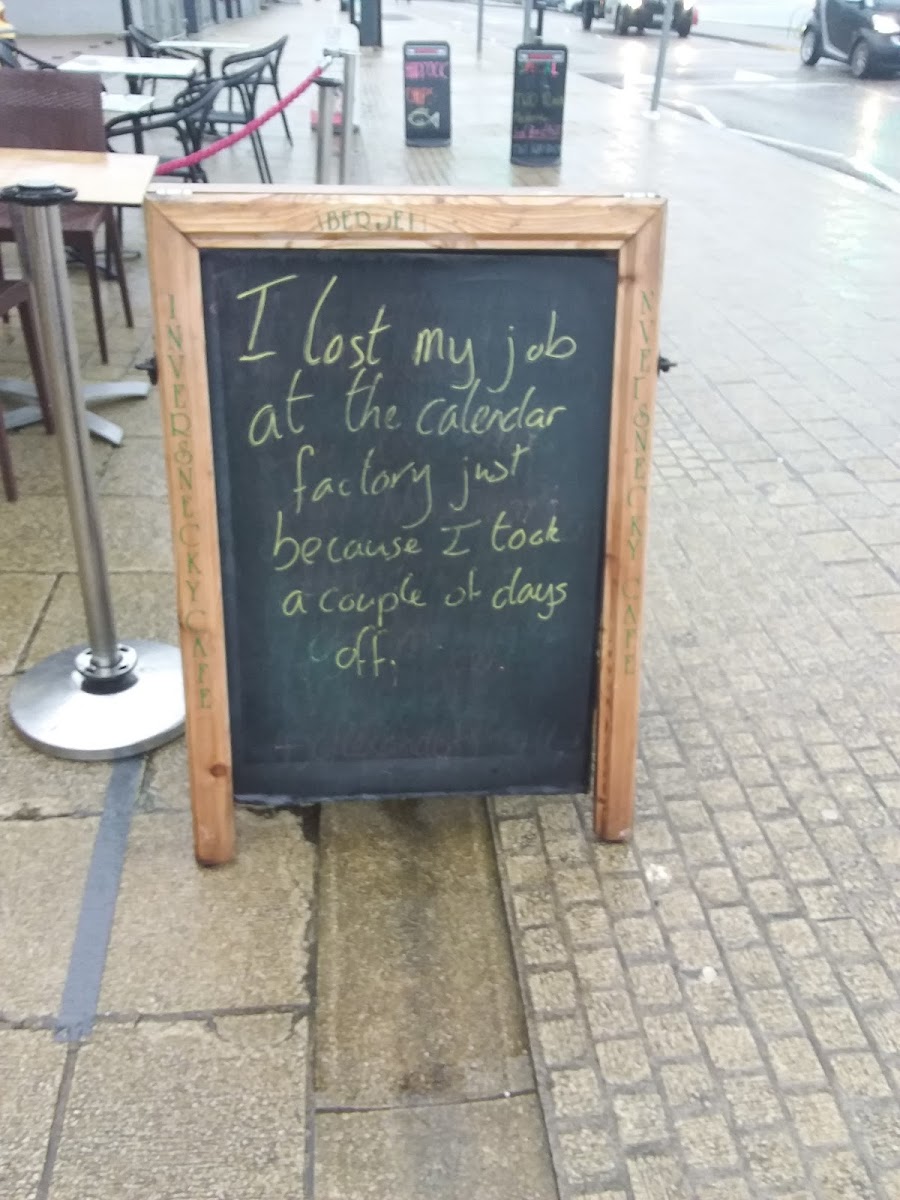 I lost my job
at the calendar
factory just
because I took
a couple of days
off.
INVERSNECKY CAFE
NVERSNECKY CAFE